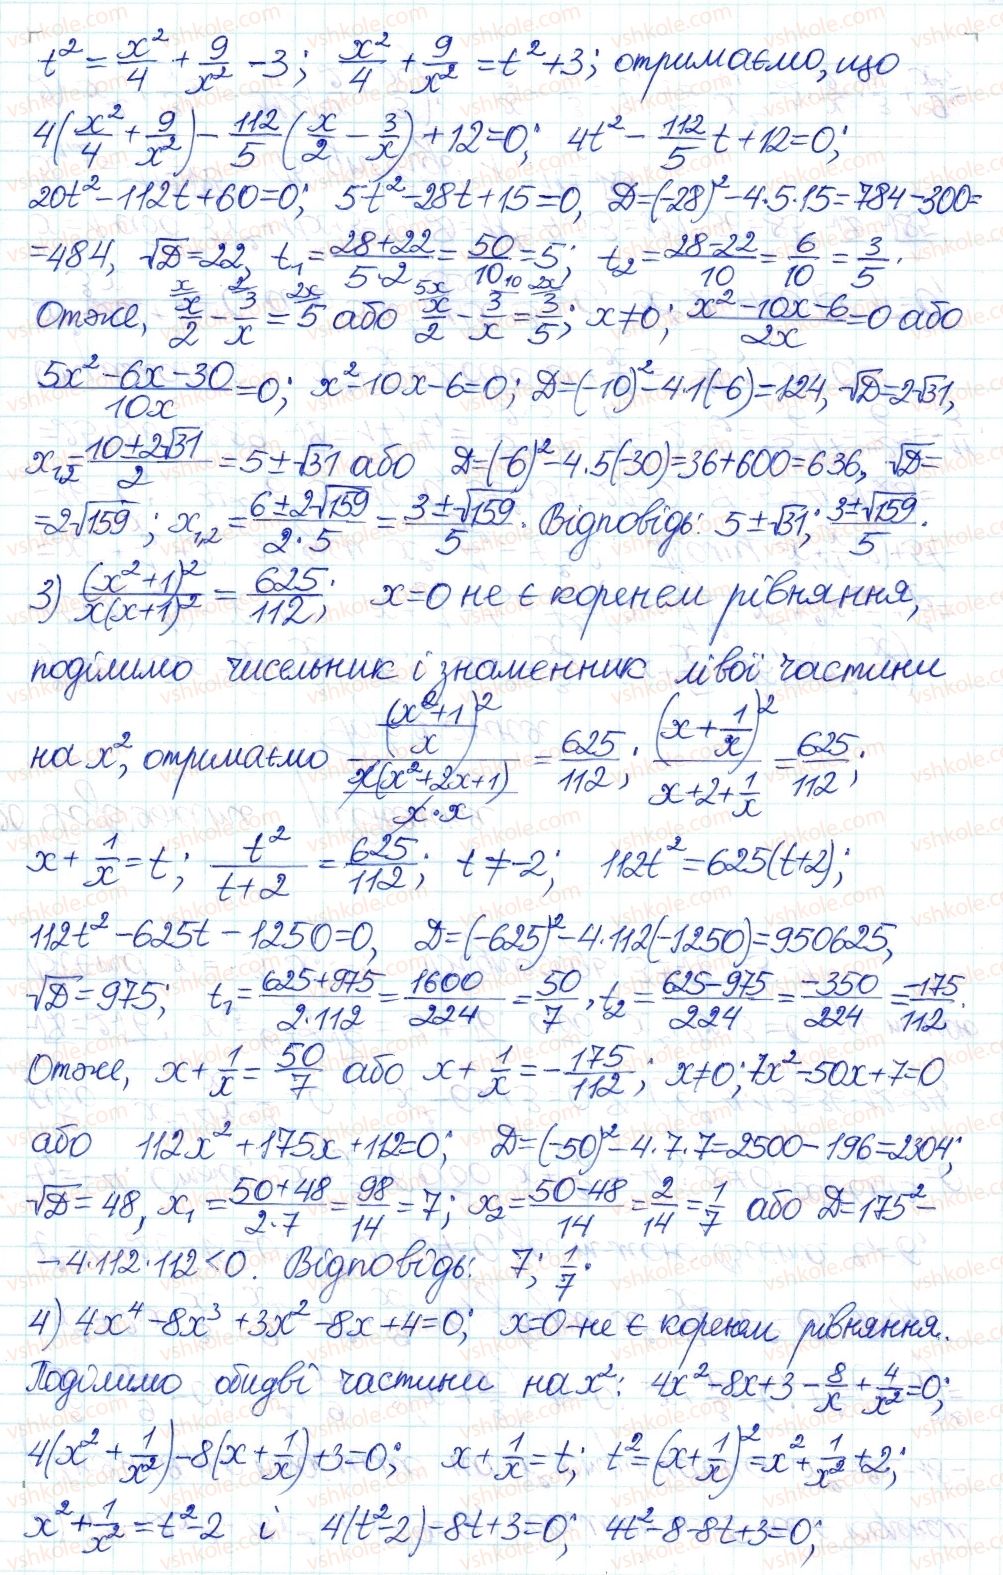 t² = x²/4 + 9/x² - 3; x²/4 + 9/x² = t² + 3; отримаємо, що
4(x²/4 + 9/x²) - 112/5 (x/2 - 3/x) + 12 = 0; 4t² - 112/5 t + 12 = 0;
20t² - 112t + 60 = 0; 5t² - 28t + 15 = 0, D = (-28)² - 4·5·15 = 784 - 300 =
= 484, √D = 22, t₁ = (28+22)/(5·2) = 50/10 = 5; t₂ = (28-22)/10 = 6/10 = 3/5.
Отже, x/2 - 3/x = 5 або x/2 - 3/x = 3/5; x ≠ 0; (x² - 10x - 6)/2x = 0 або
(5x² - 6x - 30)/10x = 0; x² - 10x - 6 = 0; D = (-10)² - 4·1(-6) = 124, √D = 2√31,
x₁,₂ = (10 ± 2√31)/2 = 5 ± √31 або D = (-6)² - 4·5(-30) = 36 + 600 = 636, √D =
= 2√159; x₁,₂ = (6 ± 2√159)/(2·5) = (3 ± √159)/5. Відповідь: 5 ± √31; (3 ± √159)/5.
3) (x²+1)²/(x(x+1)²) = 625/112; x = 0 не є коренем рівняння,
поділимо чисельник і знаменник лівої частини
на x², отримаємо ((x²+1)/x)²/(x(x²+2x+1)/(x·x)) = 625/112; (x + 1/x)²/(x + 2 + 1/x) = 625/112;
x + 1/x = t; t²/(t+2) = 625/112; t ≠ -2; 112t² = 625(t+2);
112t² - 625t - 1250 = 0, D = (-625)² - 4·112(-1250) = 950625,
√D = 975; t₁ = (625+975)/(2·112) = 1600/224 = 50/7, t₂ = (625-975)/224 = -350/224 = -175/112.
Отже, x + 1/x = 50/7 або x + 1/x = -175/112; x ≠ 0; 7x² - 50x + 7 = 0
або 112x² + 175x + 112 = 0; D = (-50)² - 4·7·7 = 2500 - 196 = 2304;
√D = 48, x₁ = (50+48)/(2·7) = 98/14 = 7; x₂ = (50-48)/14 = 2/14 = 1/7 або D = 175² -
- 4·112·112 < 0. Відповідь: 7; 1/7.
4) 4x⁴ - 8x³ + 3x² - 8x + 4 = 0; x = 0 - не є коренем рівняння.
Поділимо обидві частини на x²: 4x² - 8x + 3 - 8/x + 4/x² = 0;
4(x² + 1/x²) - 8(x + 1/x) + 3 = 0; x + 1/x = t; t² = (x + 1/x)² = x² + 1/x² + 2;
x² + 1/x² = t² - 2 і 4(t² - 2) - 8t + 3 = 0; 4t² - 8 - 8t + 3 = 0;